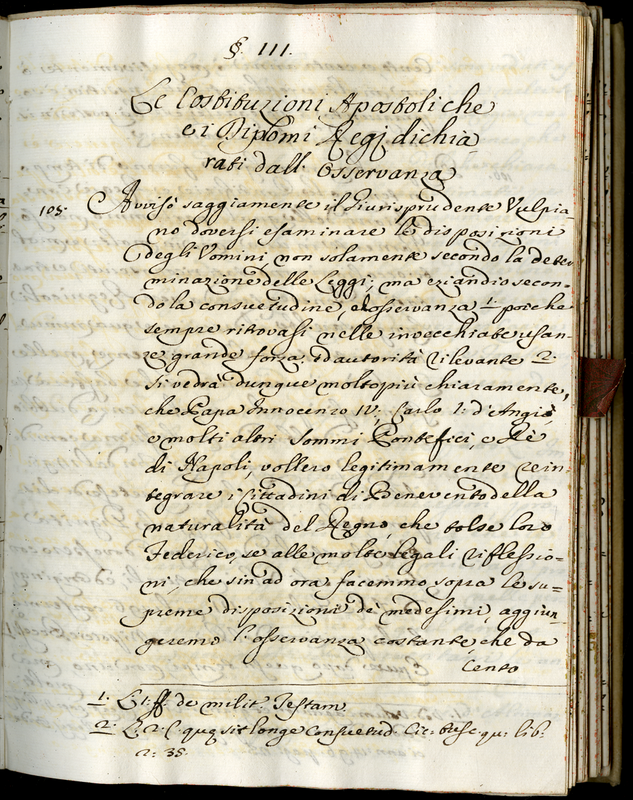 §. III.
Le Costituzioni Apostoliche
e i Diplomi Regj dichia
rati dall' Osservanza
105. Avvisò saggiamente il Giurisprudente Vulpia-
no doversi esaminare le disposizioni
degli Vomini non solamente secondo la deter
minazione delle Leggi, ma eziandio secon-
do la consuetudine, ed osservanza 1. poiche
sempre ritrovasi nelle invecchiate usan-
ze grande forza, ed autorità rilevante 2.
Si vedrà dunque molto più chiaramente,
che Papa Innocenzo IV, Carlo I: d'Angiò,
e molti altri Sommi Pontefici, e Rè
di Napoli, vollero legitimamente rein-
tegrare i Cittadini di Benevento della
naturalità del Regno, che tolse loro
Federico, se alle molte legali riflessio-
ni, che sin ad ora facemmo sopra le su-
preme disposizioni de medesimi, aggiun
geremo l'osservanza costante, che da
Cento
1. L. 1. ff. de milit. Testam.
2. L. 2. C. quę sit longe Consuetud. Cic. tusc. qu: lib.
2: 35.